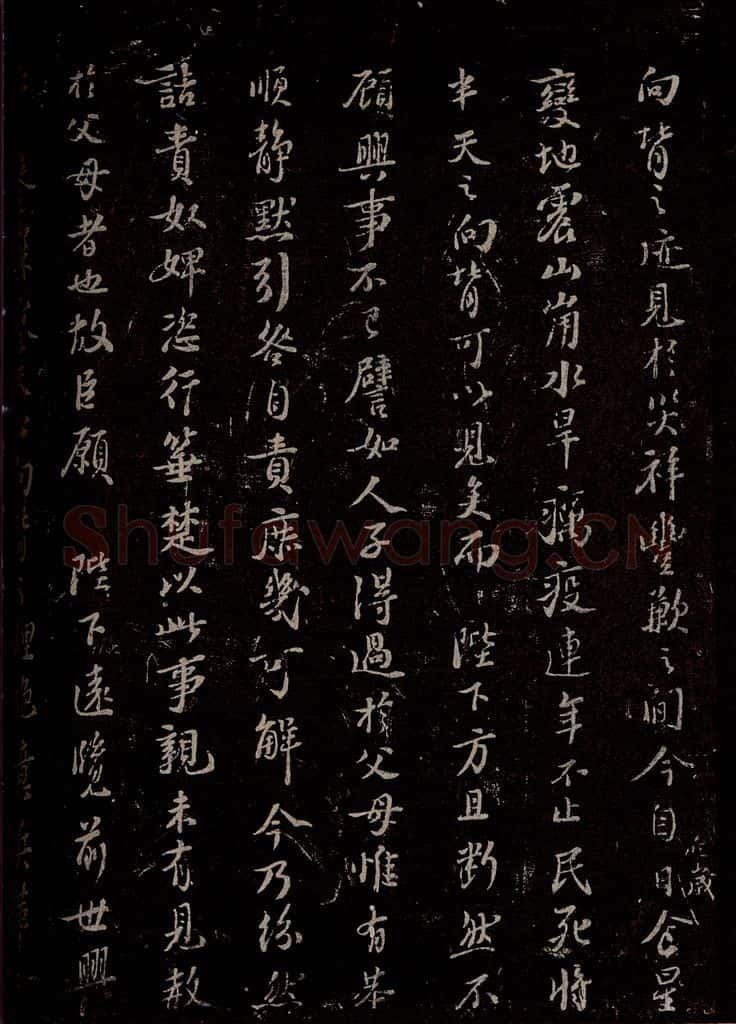 向背之迹見於災祥豐歉之間今自近歲日食星
變地震山崩水旱癘疫連年不止民死將
半天之向背可以見矣而 陛下方且断然不
顧興事不已譬如人子得過於父母惟有恭
順静默引咎自責庶幾可解今乃紛然
詰責奴婢恣行箠楚以此事親未有見赦
於父母者也故臣願 陛下遠覽前世興
Shufawang.CN